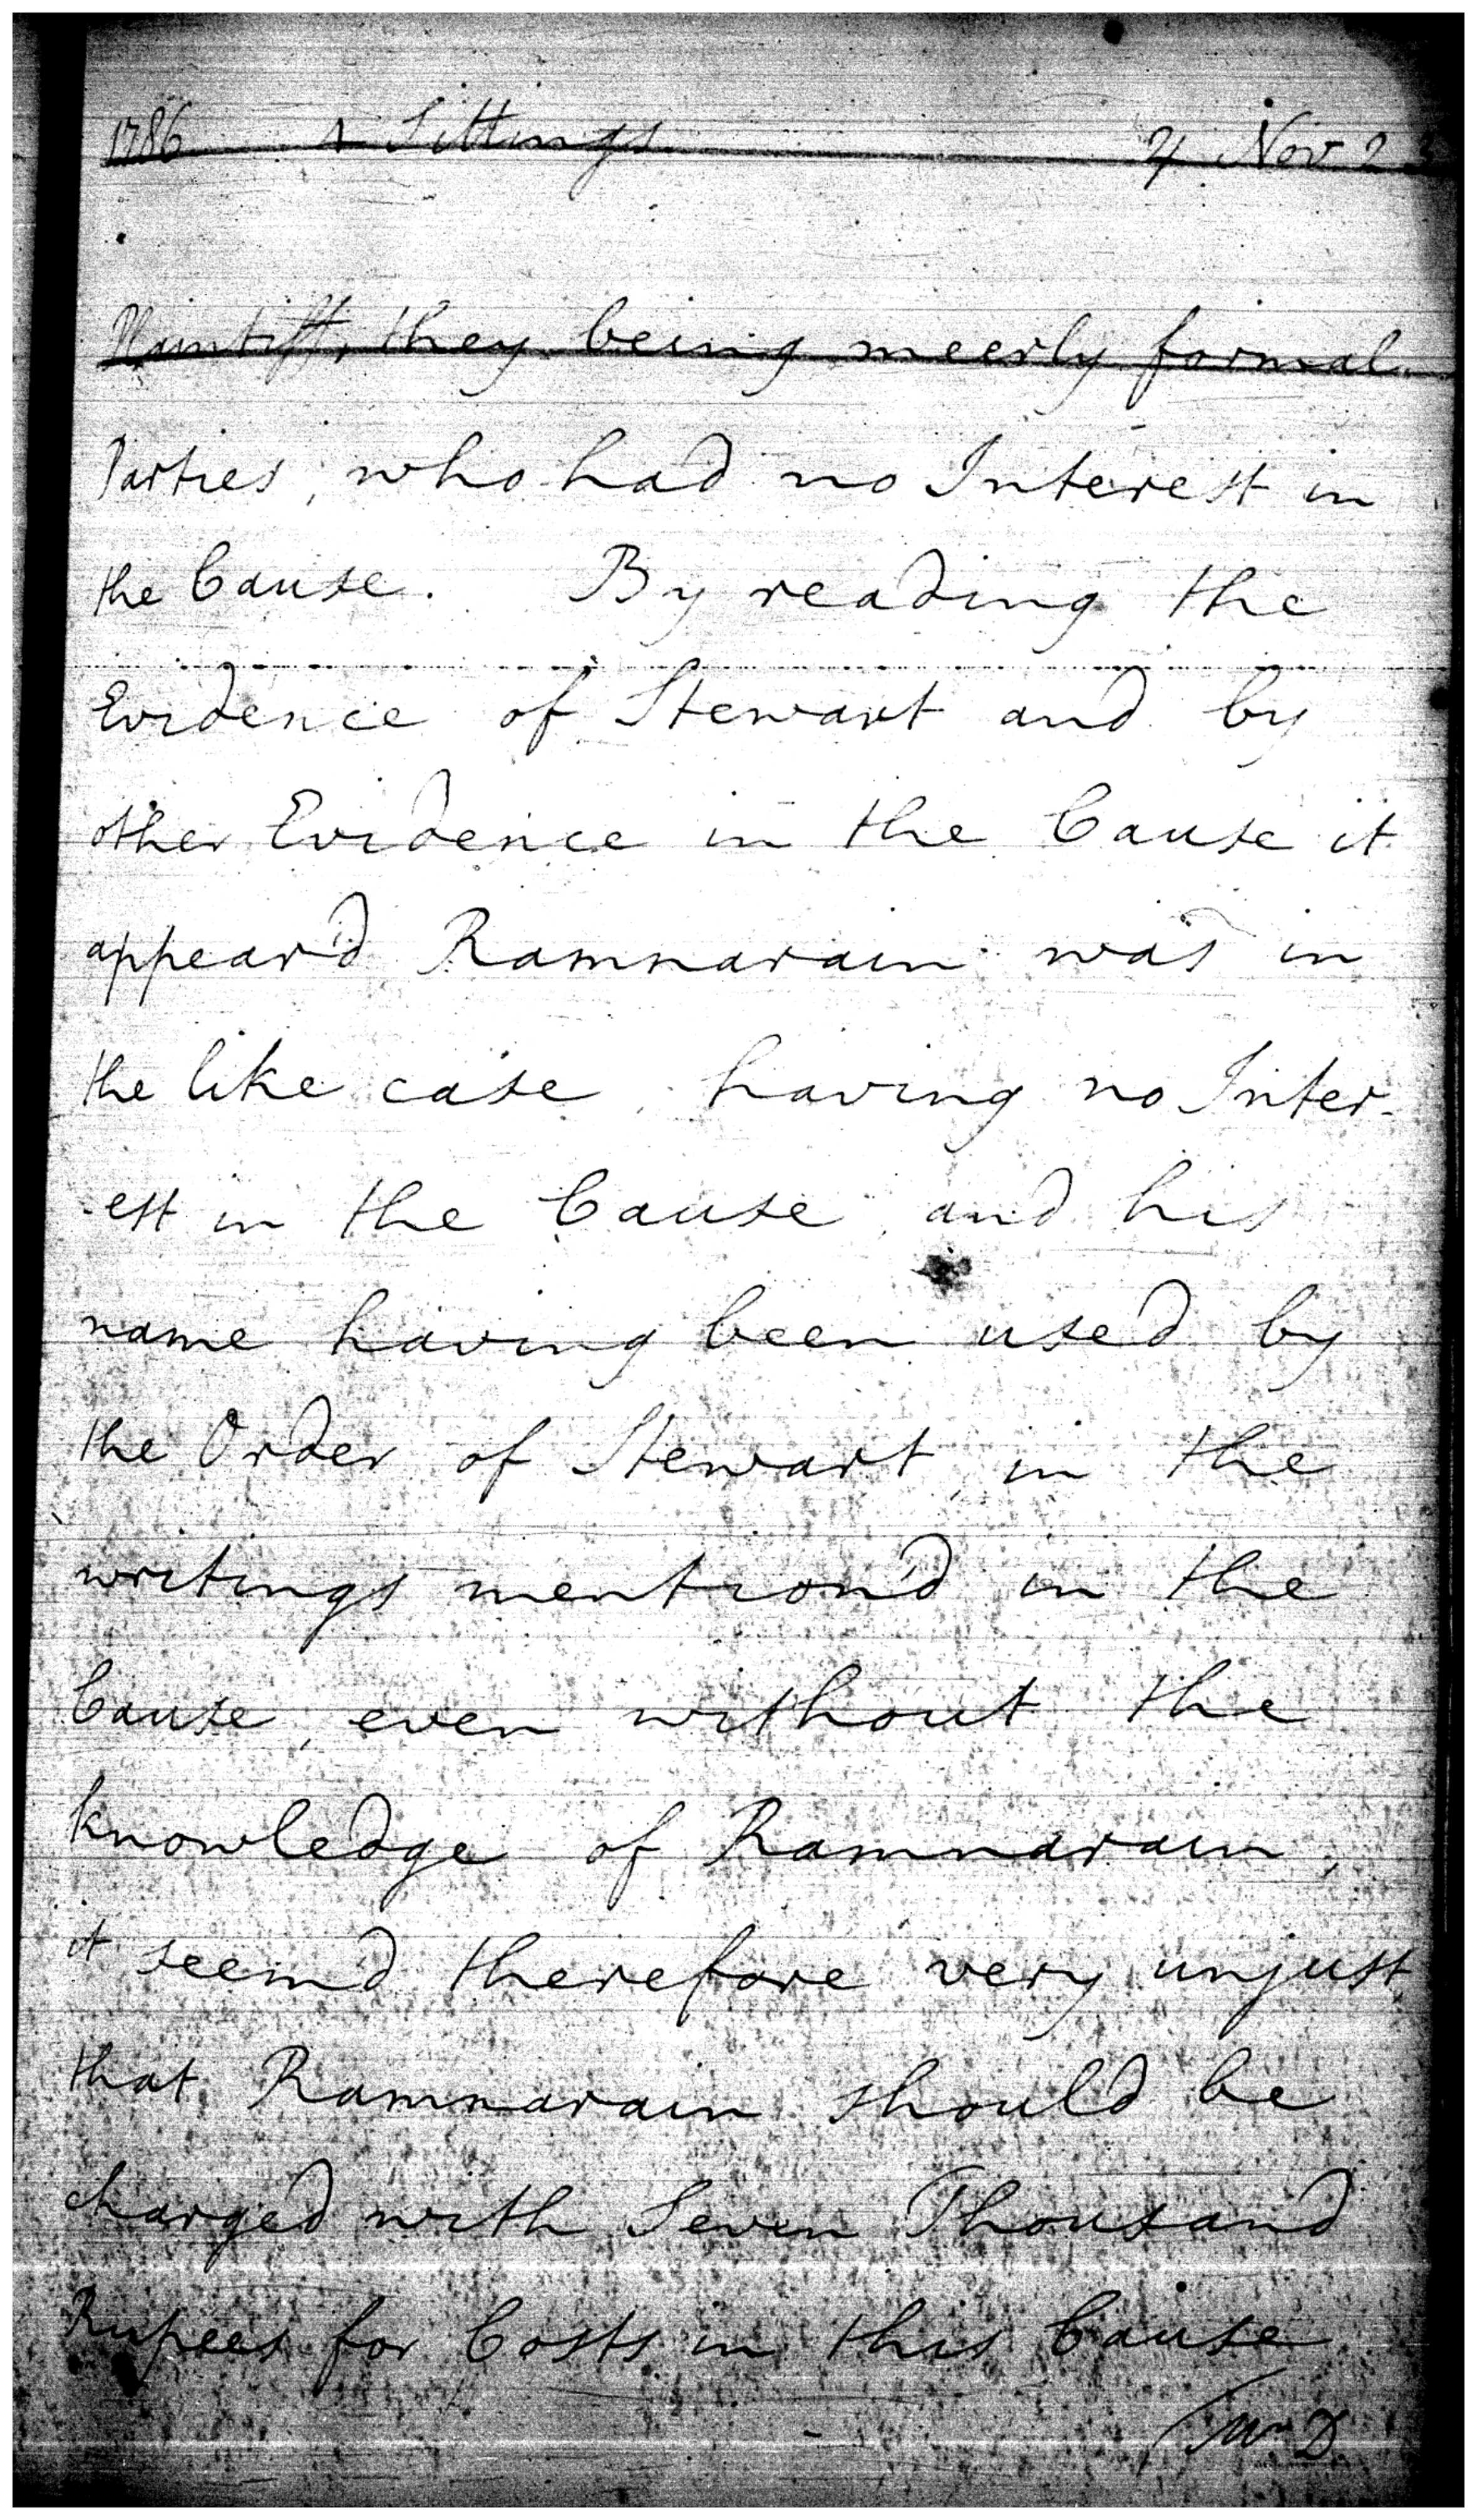 1786 Sittings 4 Nov 23
Plaintiff, they being meerly formal
Parties, who had no Interest in
the Cause. By reading the
Evidence of Stewart and by
other Evidence in the Cause it
appear'd Ramnarain was in
the like case, having no Inter-
-est in the Cause, and his
name having been used by
the Order of Stewart, in the
writings mention'd in the
Cause, even without the
knowledge of Ramnarain,
it seem'd therefore very unjust,
that Ramnarain should be
charged with Seven Thousand
Rupees for Costs in this Cause